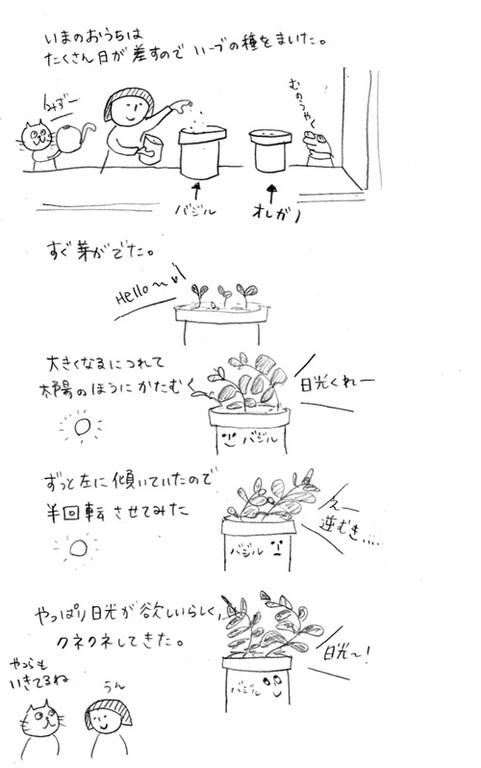 いまのおうちは
たくさん日が差すので ハーブの種をまいた。
みずー
むのうやく
バジル
オレガノ
すぐ芽がでた。
Hello〜
大きくなるにつれて
太陽のほうにかたむく
日光くれー
バジル
ずっと左に傾いていたので
半回転させてみた
えー
逆むき....
バジル
やっぱり日光が欲しいらしく、
クネクネしてきた。
日光〜!
バジル
やつらも
いきてるね
うん